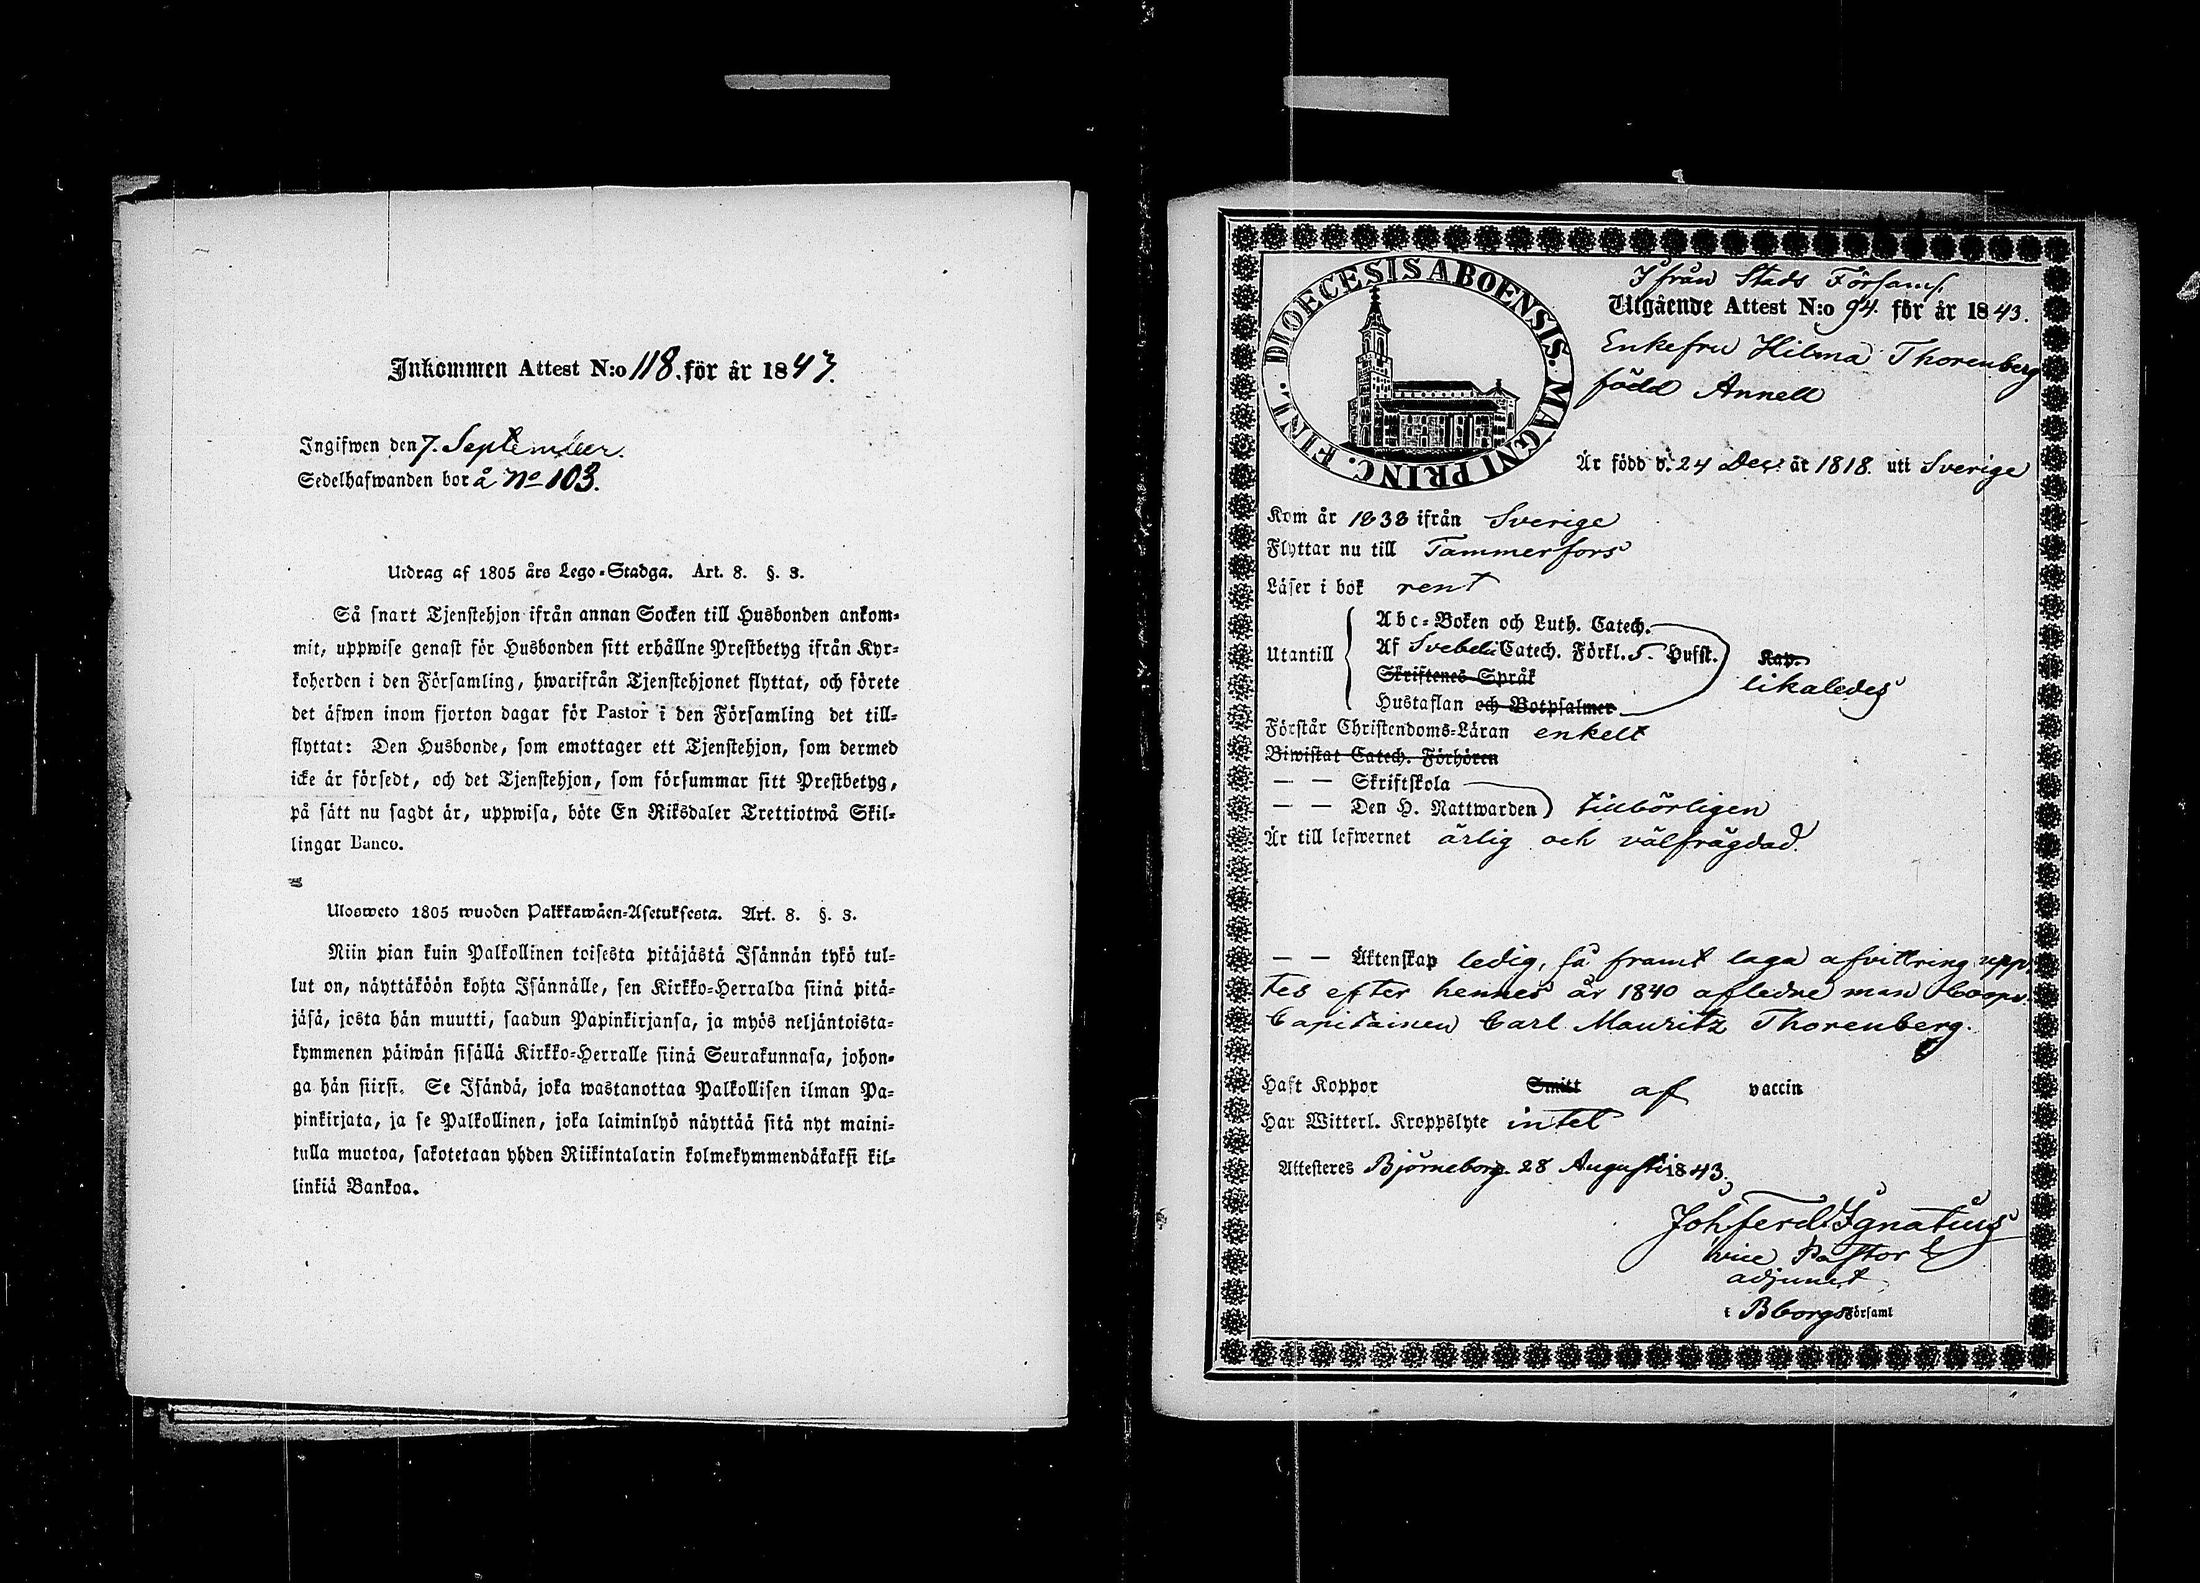 Inkommen Attest N:o 118. för år 1843.
Ingifwen den 7. September.
Sedelhafwanden bor å No 103.
Utdrag af 1805 års Lego-Stadga. Art. 8. §. 3.
Så snart Tjenstehjon ifrån annan Socken till Husbonden ankom-
mit, uppwise genast för Husbonden sitt erhållne Prestbetyg ifrån Kyr-
koherden i den Församling, hwarifrån Tjenstehjonet flyttat, och förete
det äfwen inom fjorton dagar för Pastor i den Församling det till-
flyttat: Den Husbonde, som emottager ett Tjenstehjon, som dermed
icke är försedt, och det Tjenstehjon, som försummar sitt Prestbetyg,
på sätt nu sagdt är, uppwisa, böte En Riksdaler Trettiotwå Skil-
lingar Banco.
Ulosweto 1805 wuoden Palkkawäen-Asetuksesta. Art. 8. §. 3.
Niin pian kuin Palkollinen toisesta pitäjästä Isännän tykö tul-
lut on, näyttäköön kohta Isännälle, sen Kirkko-Herralda siinä pitä-
jäsä, josta hän muutti, saadun Papinkirjansa, ja myös neljäntoista-
kymmenen päiwän sisällä Kirkko-Herralle siinä Seurakunnasa, johon-
ga hän siirsi. Se Isändä, joka wastanottaa Palkollisen ilman Pa-
pinkirjata, ja se Palkollinen, joka laiminlyö näyttää sitä nyt maini-
tulla muotoa, sakotetaan yhden Riikintalarin kolmekymmendäkaksi kil-
linkiä Bankoa.
DIOECESIS ABOENSIS. MAGNI PRINC. FINL.
Ifrån Stads Församl.
Utgående Attest N:o 94. för år 1843.
Enkefru Hilma Thorenberg
född Annell
Är född d. 24 Dec. år 1818. uti Sverige
Kom år 1838 ifrån Sverige
Flyttar nu till Tammerfors
Läser i bok rent
Abc-Boken och Luth. Catech.
Utantill Af Svebelii Catech. Förkl. 5. Hufst. Kap.
Skriftenes Språk likaledes
Hustaflan och Botpsalmer
Förstår Christendoms-Läran enkelt
Biwistat Catech. Förhören
— — Skriftskola
— — Den H. Nattwarden tillbörligen
Är till lefwernet ärlig och välfrägdad.
— — Äktenskap ledig, så framt laga afvittring upp-
tes efter hennes år 1840 afledne man Coopv.
Capitainen Carl Mauritz Thorenberg.
Haft Koppor Smitt af vaccin
Har Witterl. Kroppslyte intet
Attesteres Björneborg 28 Augusti 1843.
Joh Ferd Ignatius
vice Pastor &
adjunct
i Bborgs Församl